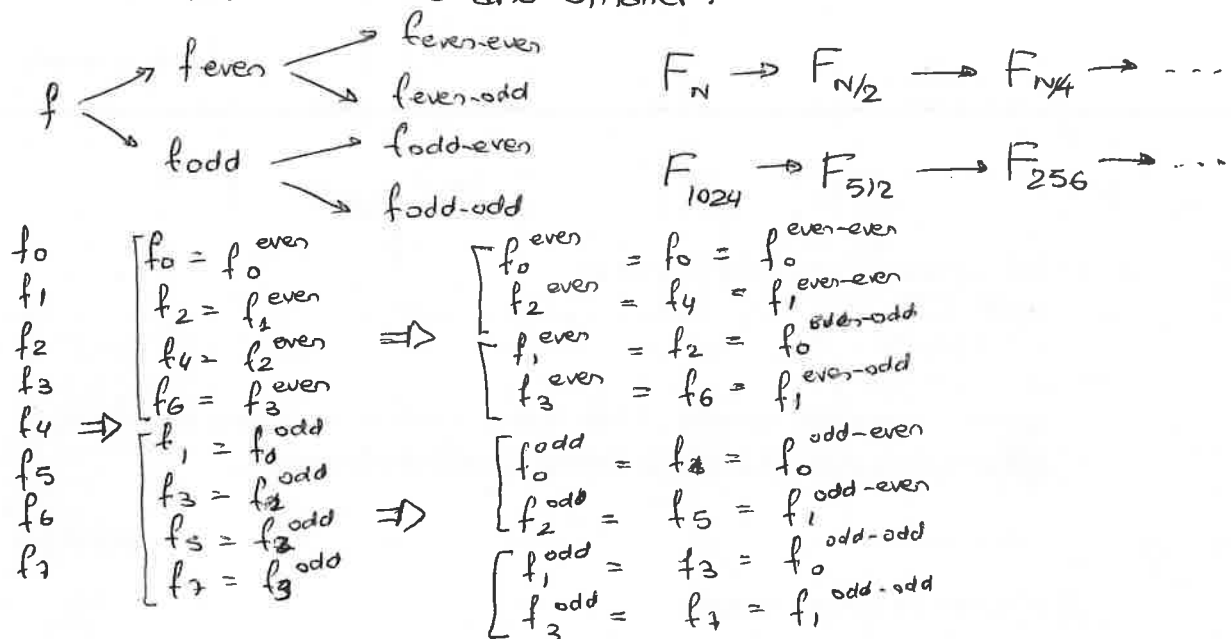 and smaller.
f → f even → f even-even
f even → f even-odd
f → f odd → f odd-even
f odd → f odd-odd
F_N → F_{N/2} → F_{N/4} → ....
F_{1024} → F_{512} → F_{256} → ....
f_0
f_1
f_2
f_3
f_4 ⇒
f_5
f_6
f_7
f_0 = f_0^{even}
f_2 = f_1^{even}
f_4 = f_2^{even} ⇒
f_6 = f_3^{even}
f_1 = f_0^{odd}
f_3 = f_1^{odd}
f_5 = f_2^{odd} ⇒
f_7 = f_3^{odd}
f_0^{even} = f_0 = f_0^{even-even}
f_2^{even} = f_4 = f_1^{even-even}
f_1^{even} = f_2 = f_0^{even-odd}
f_3^{even} = f_6 = f_1^{even-odd}
f_0^{odd} = f_1 = f_0^{odd-even}
f_2^{odd} = f_5 = f_1^{odd-even}
f_1^{odd} = f_3 = f_0^{odd-odd}
f_3^{odd} = f_7 = f_1^{odd-odd}